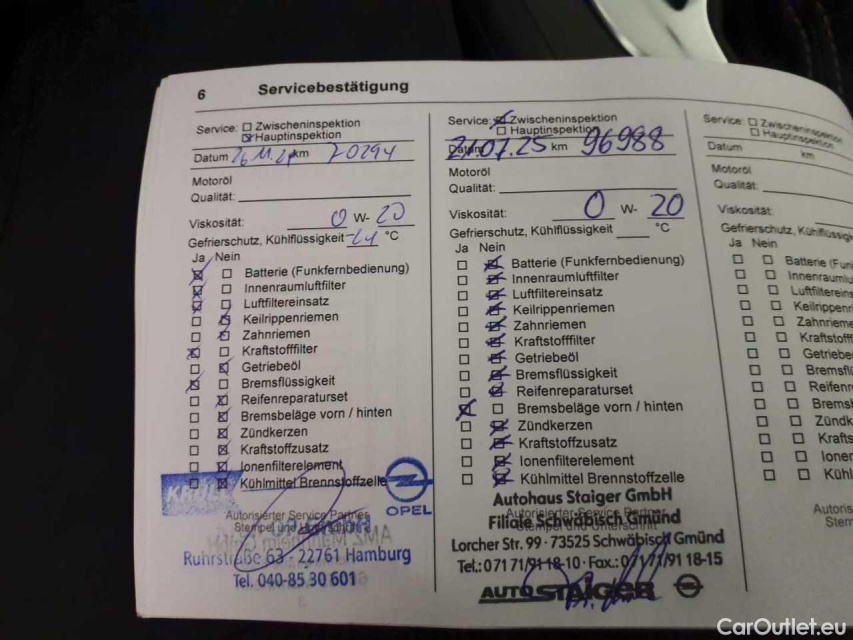 6 Servicebestätigung
Service: Zwischeninspektion
Hauptinspektion
Datum 26.11.24 km 70294
Motoröl
Qualität:
Viskosität: 0 W- 20
Gefrierschutz, Kühlflüssigkeit °C
Ja Nein
Batterie (Funkfernbedienung)
Innenraumluftfilter
Luftfiltereinsatz
Keilrippenriemen
Zahnriemen
Kraftstofffilter
Getriebeöl
Bremsflüssigkeit
Reifenreparaturset
Bremsbeläge vorn / hinten
Zündkerzen
Kraftstoffzusatz
Ionenfilterelement
Kühlmittel Brennstoffzelle
OPEL
Autorisierter Service Partner
Stempel und Unterschrift
Ruhrstraße 63 · 22761 Hamburg
Tel. 040-85 30 601
Service: Zwischeninspektion
Hauptinspektion
Datum 21.07.25 km 96988
Motoröl
Qualität:
Viskosität: 0 W- 20
Gefrierschutz, Kühlflüssigkeit °C
Ja Nein
Batterie (Funkfernbedienung)
Innenraumluftfilter
Luftfiltereinsatz
Keilrippenriemen
Zahnriemen
Kraftstofffilter
Getriebeöl
Bremsflüssigkeit
Reifenreparaturset
Bremsbeläge vorn / hinten
Zündkerzen
Kraftstoffzusatz
Ionenfilterelement
Kühlmittel Brennstoffzelle
Autohaus Staiger GmbH
Autorisierter Service Partner
Filiale Schwäbisch Gmünd
Stempel und Unterschrift
Lorcher Str. 99 · 73525 Schwäbisch Gmünd
Tel.: 0 71 71/91 18-10 · Fax.: 0 71 71/91 18-15
AUTOSTAIGER
Service: Zwischeninspektion
Hauptinspektion
Datum km
Motoröl
Qualität:
Viskosität:
Gefrierschutz, Kühlflüssigk
Ja Nein
Batterie (Fun
Innenraumlu
Luftfiltereins
Keilrippenrie
Zahnrieme
Kraftstoff
Getriebe
Bremsflü
Reifenr
Brems
Zündk
Krafts
Ionen
Kühl
Autoris
Stem
CarOutlet.eu